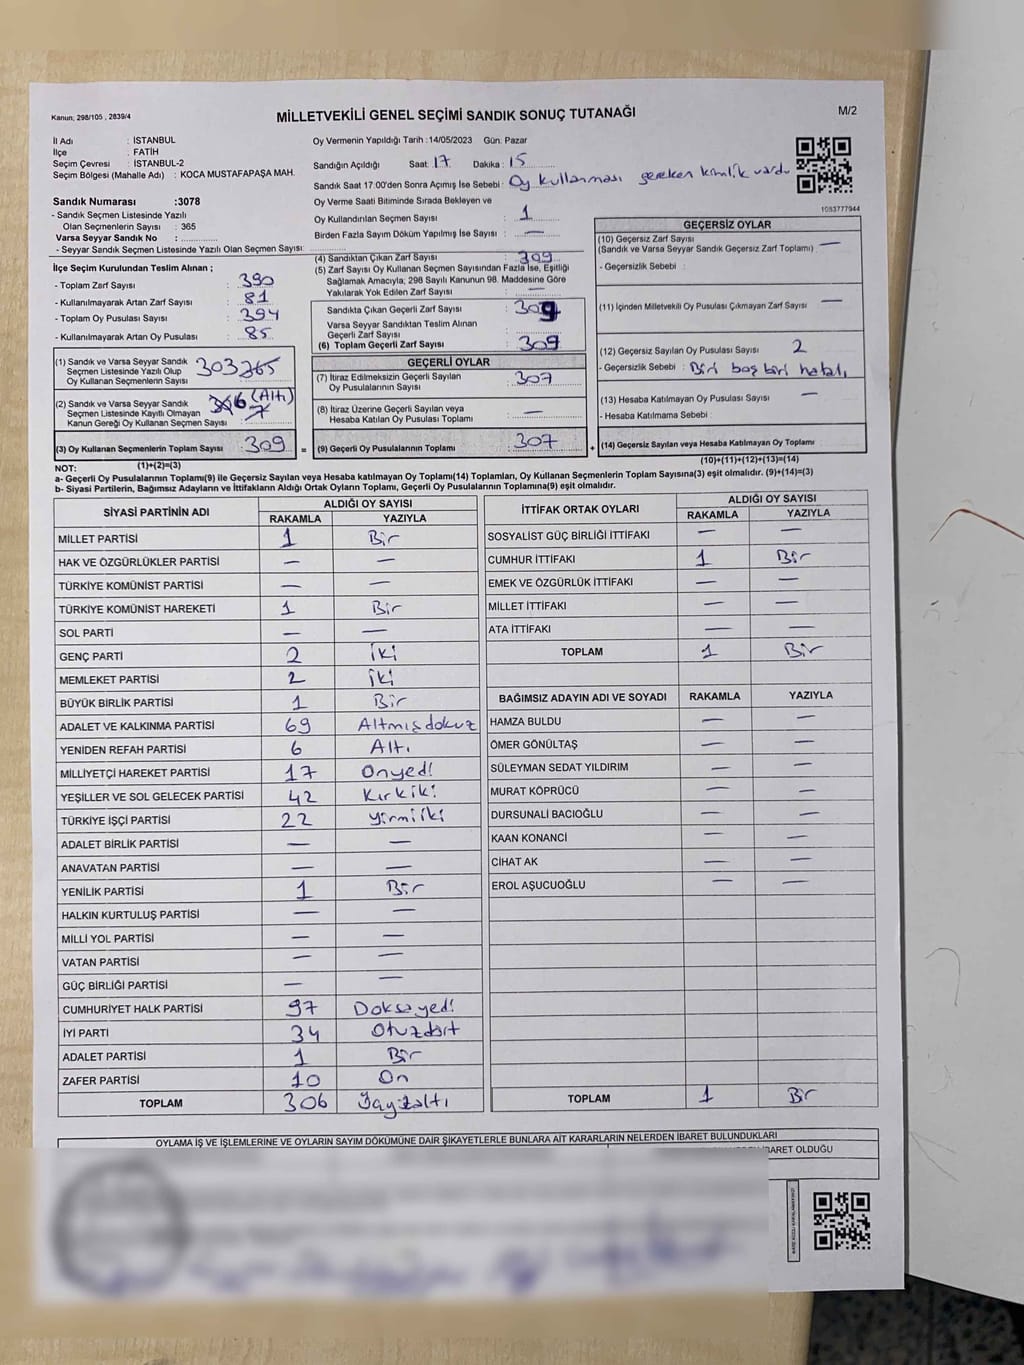 Kanun; 298/105 , 2839/4
MİLLETVEKİLİ GENEL SEÇİMİ SANDIK SONUÇ TUTANAĞI
M/2
İl Adı : İSTANBUL
İlçe : FATİH
Seçim Çevresi : İSTANBUL-2
Seçim Bölgesi (Mahalle Adı) : KOCA MUSTAFAPAŞA MAH.
Sandık Numarası :3078
- Sandık Seçmen Listesinde Yazılı
Olan Seçmenlerin Sayısı : 365
Varsa Seyyar Sandık No :
- Seyyar Sandık Seçmen Listesinde Yazılı Olan Seçmen Sayısı:
Oy Vermenin Yapıldığı Tarih :14/05/2023 Gün: Pazar
Sandığın Açıldığı Saat: 17 Dakika : 15
Sandık Saat 17:00'den Sonra Açımış İse Sebebi : Oy kullanması gereken kimlik vardı
Oy Verme Saati Bitiminde Sırada Bekleyen ve
Oy Kullandırılan Seçmen Sayısı : 1
Birden Fazla Sayım Döküm Yapılmış İse Sayısı : —
1083777944
İlçe Seçim Kurulundan Teslim Alınan ;
- Toplam Zarf Sayısı : 390
- Kullanılmayarak Artan Zarf Sayısı : 81
- Toplam Oy Pusulası Sayısı : 394
- Kullanılmayarak Artan Oy Pusulası : 85
(1) Sandık ve Varsa Seyyar Sandık
Seçmen Listesinde Yazılı Olup
Oy Kullanan Seçmenlerin Sayısı
303
(2) Sandık ve Varsa Seyyar Sandık
Seçmen Listesinde Kayıtlı Olmayan
Kanun Gereği Oy Kullanan Seçmen Sayısı :
6 (Altı)
(3) Oy Kullanan Seçmenlerin Toplam Sayısı : 309
(1)+(2)=(3)
(4) Sandıktan Çıkan Zarf Sayısı : 309
(5) Zarf Sayısı Oy Kullanan Seçmen Sayısından Fazla İse, Eşitliği
Sağlamak Amacıyla; 298 Sayılı Kanunun 98. Maddesine Göre
Yakılarak Yok Edilen Zarf Sayısı : —
Sandıkta Çıkan Geçerli Zarf Sayısı : 309
Varsa Seyyar Sandıktan Teslim Alınan
Geçerli Zarf Sayısı :
(6) Toplam Geçerli Zarf Sayısı : 309
GEÇERLİ OYLAR
(7) İtiraz Edilmeksizin Geçerli Sayılan
Oy Pusulalarının Sayısı : 307
(8) İtiraz Üzerine Geçerli Sayılan veya
Hesaba Katılan Oy Pusulası Toplamı : —
(9) Geçerli Oy Pusulalarının Toplamı : 307
GEÇERSİZ OYLAR
(10) Geçersiz Zarf Sayısı
(Sandık ve Varsa Seyyar Sandık Geçersiz Zarf Toplamı) —
- Geçersizlik Sebebi :
(11) İçinden Milletvekili Oy Pusulası Çıkmayan Zarf Sayısı —
(12) Geçersiz Sayılan Oy Pusulası Sayısı 2
- Geçersizlik Sebebi : Biri boş biri hatalı
(13) Hesaba Katılmayan Oy Pusulası Sayısı —
- Hesaba Katılmama Sebebi :
(14) Geçersiz Sayılan veya Hesaba Katılmayan Oy Toplamı
(10)+(11)+(12)+(13)=(14)
NOT:
a- Geçerli Oy Pusulalarının Toplamı(9) ile Geçersiz Sayılan veya Hesaba katılmayan Oy Toplamı(14) Toplamları, Oy Kullanan Seçmenlerin Toplam Sayısına(3) eşit olmalıdır. (9)+(14)=(3)
b- Siyasi Partilerin, Bağımsız Adayların ve İttifakların Aldığı Ortak Oyların Toplamı, Geçerli Oy Pusulalarının Toplamına(9) eşit olmalıdır.
SİYASİ PARTİNİN ADI ALDIĞI OY SAYISI
RAKAMLA YAZIYLA
MİLLET PARTİSİ 1 Bir
HAK VE ÖZGÜRLÜKLER PARTİSİ — —
TÜRKİYE KOMÜNİST PARTİSİ — —
TÜRKİYE KOMÜNİST HAREKETİ 1 Bir
SOL PARTİ — —
GENÇ PARTİ 2 İki
MEMLEKET PARTİSİ 2 İki
BÜYÜK BİRLİK PARTİSİ 1 Bir
ADALET VE KALKINMA PARTİSİ 69 Altmışdokuz
YENİDEN REFAH PARTİSİ 6 Altı
MİLLİYETÇİ HAREKET PARTİSİ 17 Onyedi
YEŞİLLER VE SOL GELECEK PARTİSİ 42 Kırkiki
TÜRKİYE İŞÇİ PARTİSİ 22 Yirmiiki
ADALET BİRLİK PARTİSİ — —
ANAVATAN PARTİSİ — —
YENİLİK PARTİSİ 1 Bir
HALKIN KURTULUŞ PARTİSİ — —
MİLLİ YOL PARTİSİ — —
VATAN PARTİSİ — —
GÜÇ BİRLİĞİ PARTİSİ — —
CUMHURİYET HALK PARTİSİ 97 Doksayedi
İYİ PARTİ 34 Otuzdört
ADALET PARTİSİ 1 Bir
ZAFER PARTİSİ 10 On
TOPLAM 306 Üçyüzaltı
İTTİFAK ORTAK OYLARI ALDIĞI OY SAYISI
RAKAMLA YAZIYLA
SOSYALİST GÜÇ BİRLİĞİ İTTİFAKI — —
CUMHUR İTTİFAKI 1 Bir
EMEK VE ÖZGÜRLÜK İTTİFAKI — —
MİLLET İTTİFAKI — —
ATA İTTİFAKI — —
TOPLAM 1 Bir
BAĞIMSIZ ADAYIN ADI VE SOYADI RAKAMLA YAZIYLA
HAMZA BULDU — —
ÖMER GÖNÜLTAŞ — —
SÜLEYMAN SEDAT YILDIRIM — —
MURAT KÖPRÜCÜ — —
DURSUNALİ BACIOĞLU — —
KAAN KONANCİ — —
CİHAT AK — —
EROL AŞUCUOĞLU — —
TOPLAM 1 Bir
OYLAMA İŞ VE İŞLEMLERİNE VE OYLARIN SAYIM DÖKÜMÜNE DAİR ŞİKAYETLERLE BUNLARA AİT KARARLARIN NELERDEN İBARET BULUNDUKLARI
İBARET OLDUĞU